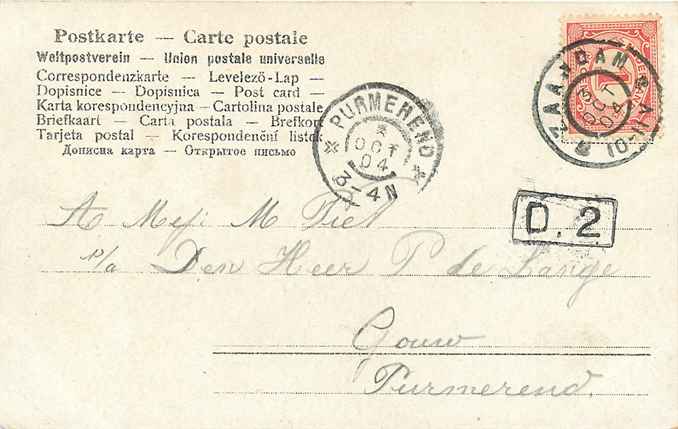 Postkarte — Carte postale
Weltpostverein — Union postale universelle
Correspondenzkarte — Levelező-Lap —
Dopisnice — Dopisnica — Post card —
Karta korespondencyjna — Cartolina postale
Briefkaart — Carta postala — Brefkort
Tarjeta postal — Korespondenční listek
Дописна карта — Открытое письмо
PURMEREND
OCT
04
3-4N
ZAANDAM
OCT
04
10-11V
D.2
A Mej: M Piel
p/a Den Heer P de Lange
Gouw
Purmerend.